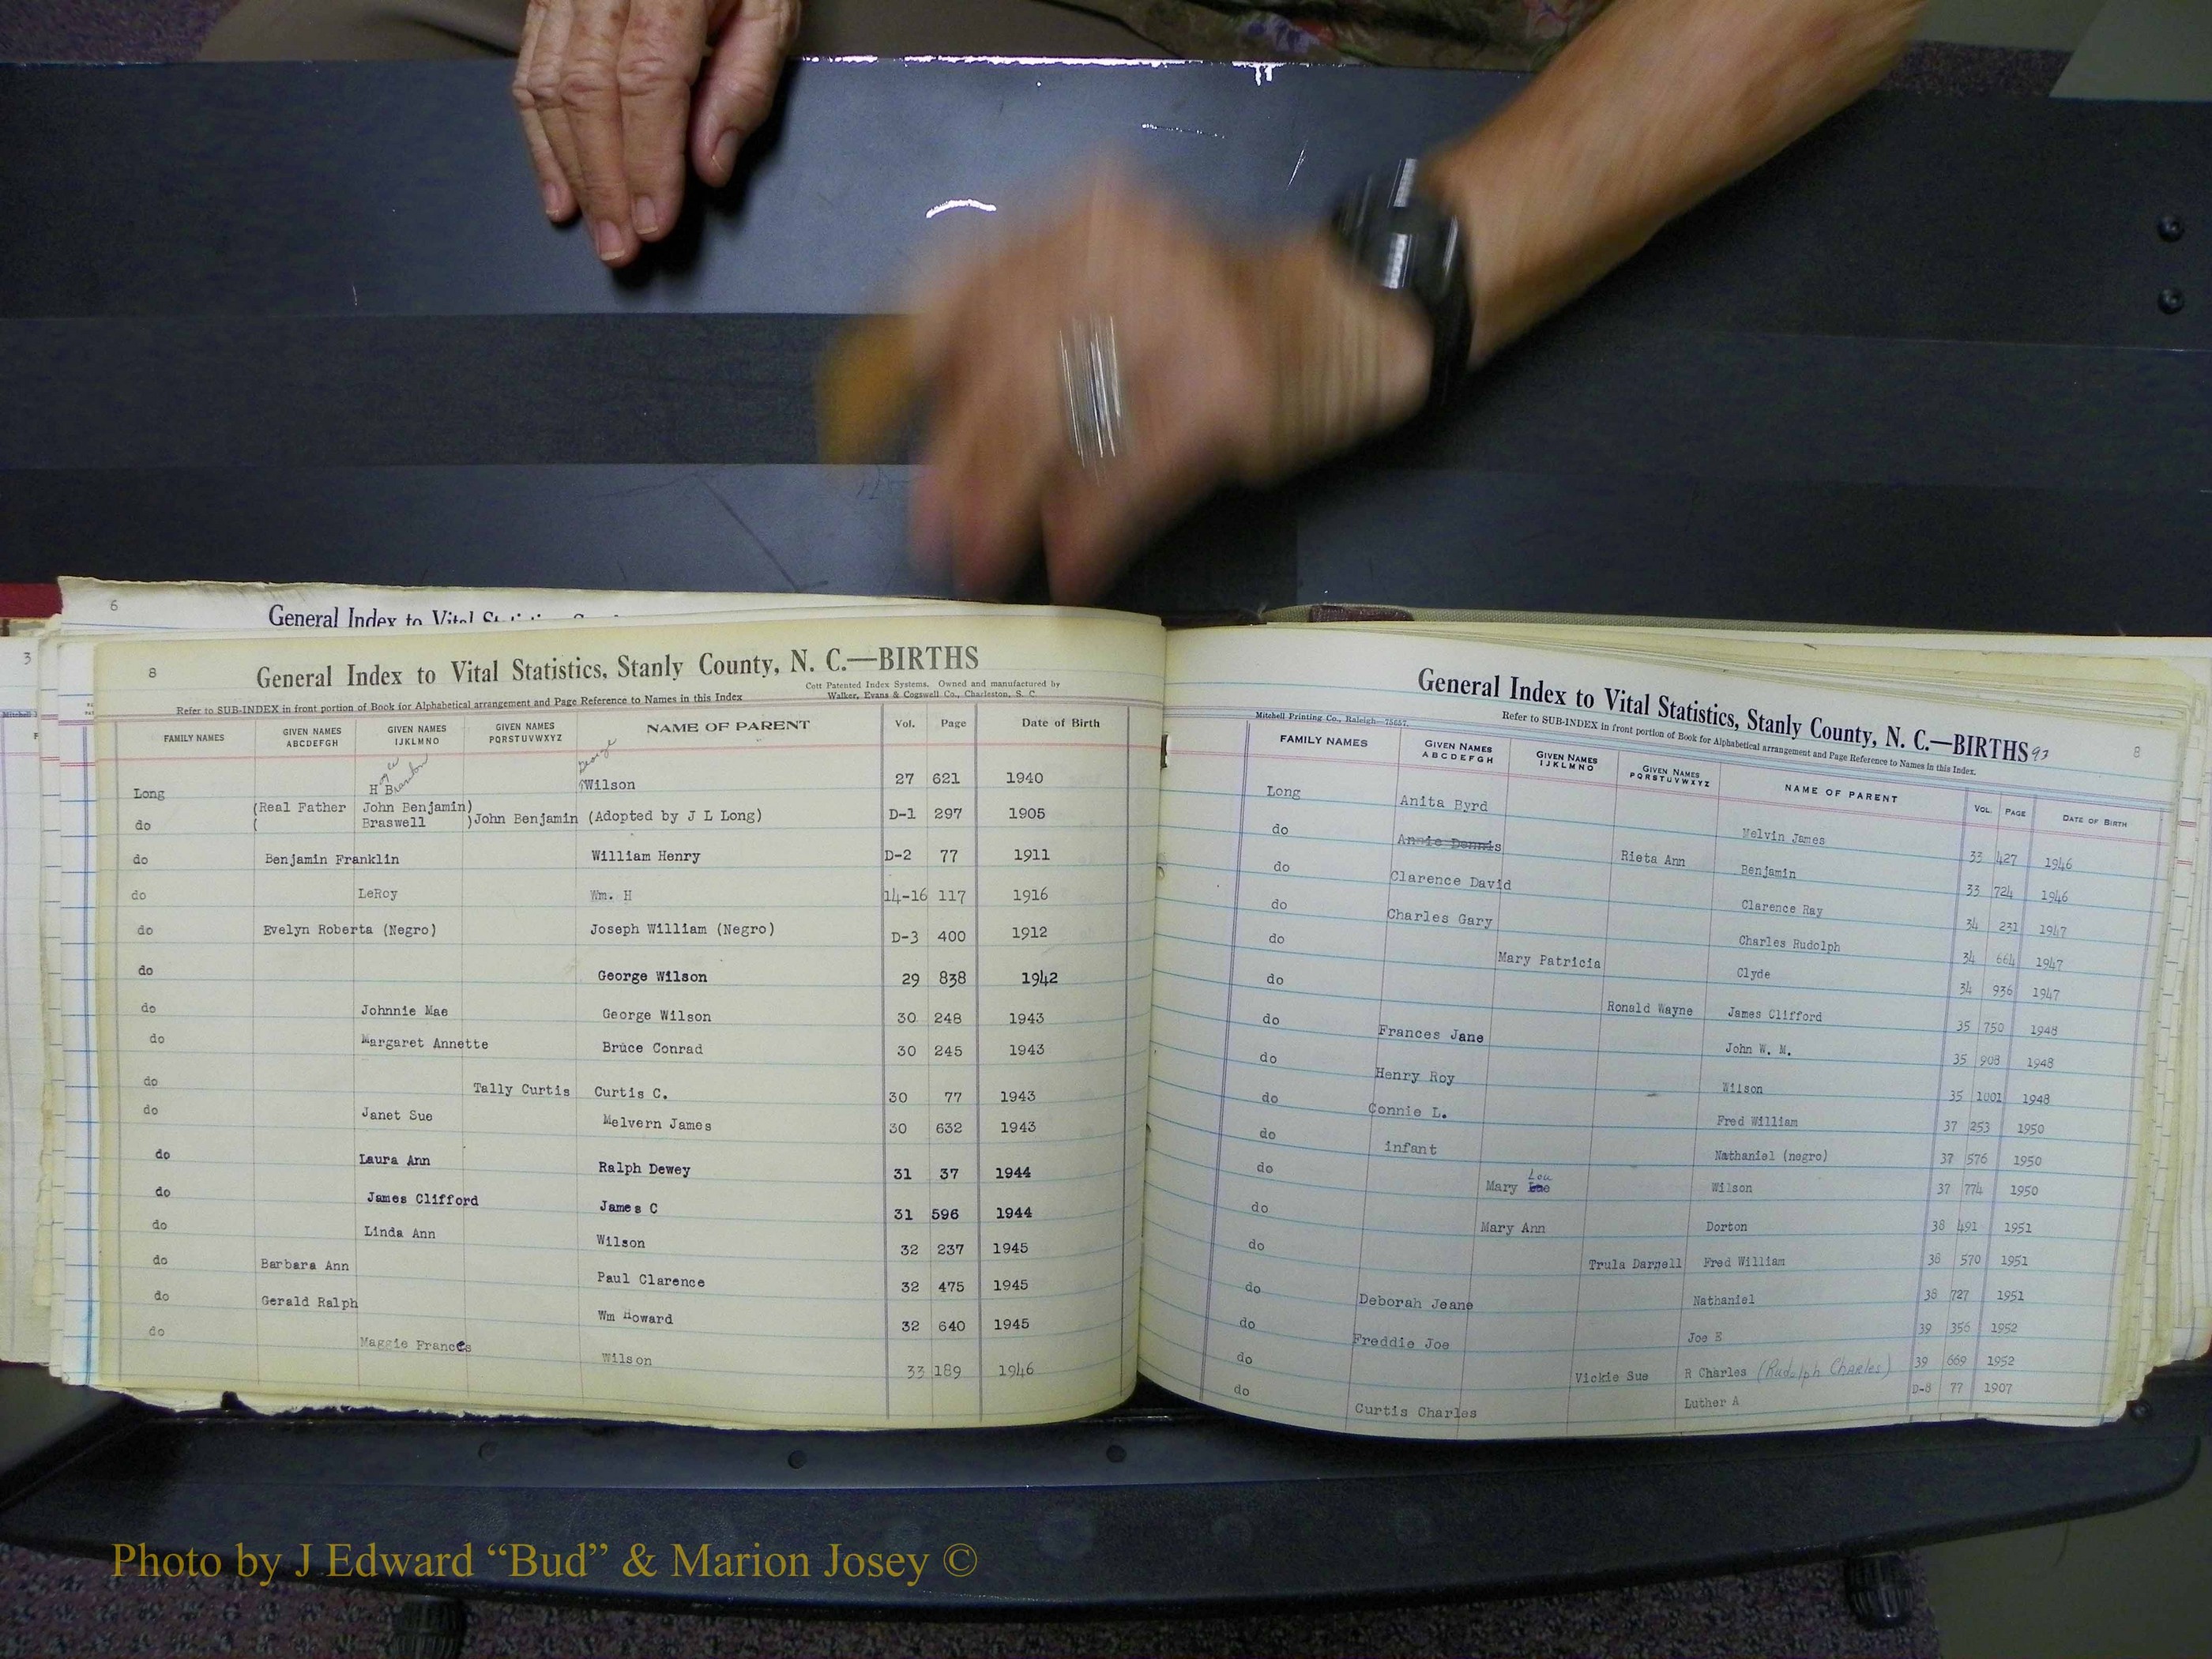 6
General Index to Vital
3
8
General Index to Vital Statistics, Stanly County, N. C.—BIRTHS
Cott Patented Index Systems. Owned and manufactured by
Walker, Evans & Cogswell Co., Charleston, S. C.
Refer to SUB-INDEX in front portion of Book for Alphabetical arrangement and Page Reference to Names in this Index
FAMILY NAMES GIVEN NAMES ABCDEFGH GIVEN NAMES IJKLMNO GIVEN NAMES PQRSTUVWXYZ NAME OF PARENT Vol. Page Date of Birth
Long George Wilson 27 621 1940
do (Real Father John Benjamin) Braswell )John Benjamin (Adopted by J L Long) D-1 297 1905
do Benjamin Franklin William Henry D-2 77 1911
do LeRoy Wm. H 14-16 117 1916
do Evelyn Roberta (Negro) Joseph William (Negro) D-3 400 1912
do George Wilson 29 838 1942
do Johnnie Mae George Wilson 30 248 1943
do Margaret Annette Bruce Conrad 30 245 1943
do Tally Curtis Curtis C. 30 77 1943
do Janet Sue Melvern James 30 632 1943
do Laura Ann Ralph Dewey 31 37 1944
do James Clifford James C 31 596 1944
do Linda Ann Wilson 32 237 1945
do Barbara Ann Paul Clarence 32 475 1945
do Gerald Ralph Wm Howard 32 640 1945
do Maggie Frances Wilson 33 189 1946
General Index to Vital Statistics, Stanly County, N. C.—BIRTHS 93
8
Mitchell Printing Co., Raleigh—75657.
Refer to SUB-INDEX in front portion of Book for Alphabetical arrangement and Page Reference to Names in this Index.
FAMILY NAMES GIVEN NAMES ABCDEFGH GIVEN NAMES IJKLMNO GIVEN NAMES PQRSTUVWXYZ NAME OF PARENT VOL. PAGE DATE OF BIRTH
Long Anita Byrd Melvin James 33 427 1946
do Annie Dennis Rieta Ann Benjamin 33 724 1946
do Clarence David Clarence Ray 34 231 1947
do Charles Gary Charles Rudolph 34 664 1947
do Mary Patricia Clyde 34 936 1947
do Ronald Wayne James Clifford 35 750 1948
do Frances Jane John W. M. 35 908 1948
do Henry Roy Wilson 35 1001 1948
do Connie L. Fred William 37 253 1950
do infant Nathaniel (negro) 37 576 1950
do Mary Lou Wilson 37 774 1950
do Mary Ann Dorton 38 491 1951
do Trula Darnell Fred William 38 570 1951
do Deborah Jeane Nathaniel 38 727 1951
do Freddie Joe Joe E 39 356 1952
do Vickie Sue R Charles (Rudolph Charles) 39 669 1952
do Curtis Charles Luther A D-8 77 1907
Photo by J Edward “Bud” & Marion Josey ©